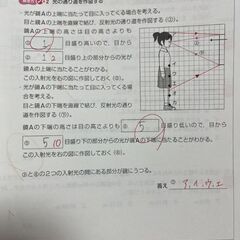 2 光の通り道を作図する
光が鏡Aの上端に当たって目に入ってくる場合を考える。
目と鏡Aの上端を直線で結び、反射光の通り道を作図する(③)。
鏡Aの上端の高さは目の高さよりも
① 1 目盛り高いので、目から
② 1 2 目盛り上の部分からの光が鏡Aの上端
に当たることがわかる。
この入射光を右の図に作図しておく(④)。
光が鏡Aの下端に当たって目に入ってくる場合を考える。
目と鏡Aの下端を直線で結び、反射光の通り
道を作図する(⑤)。
鏡Aの下端の高さは目の高さよりも ⑥ 5 目盛り低いので、目から
⑦ 5 10 目盛り下の部分からの光が鏡Aの下端に当たることがわかる。
この入射光を右の図に作図しておく(⑧)。
の2つの入射光の間にある部分が鏡にうつる。
答え ⑨ ア、イ、ウ、エ